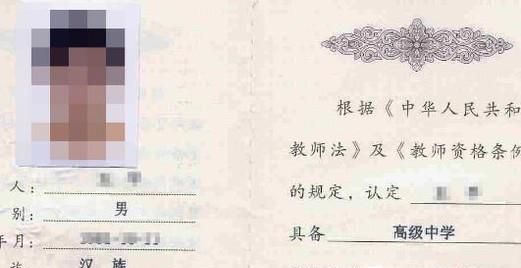 人：
别：男
年月：
族 汉 族
根据《中华人民共和
教师法》及《教师资格条例
的规定，认定
具备 高级中学